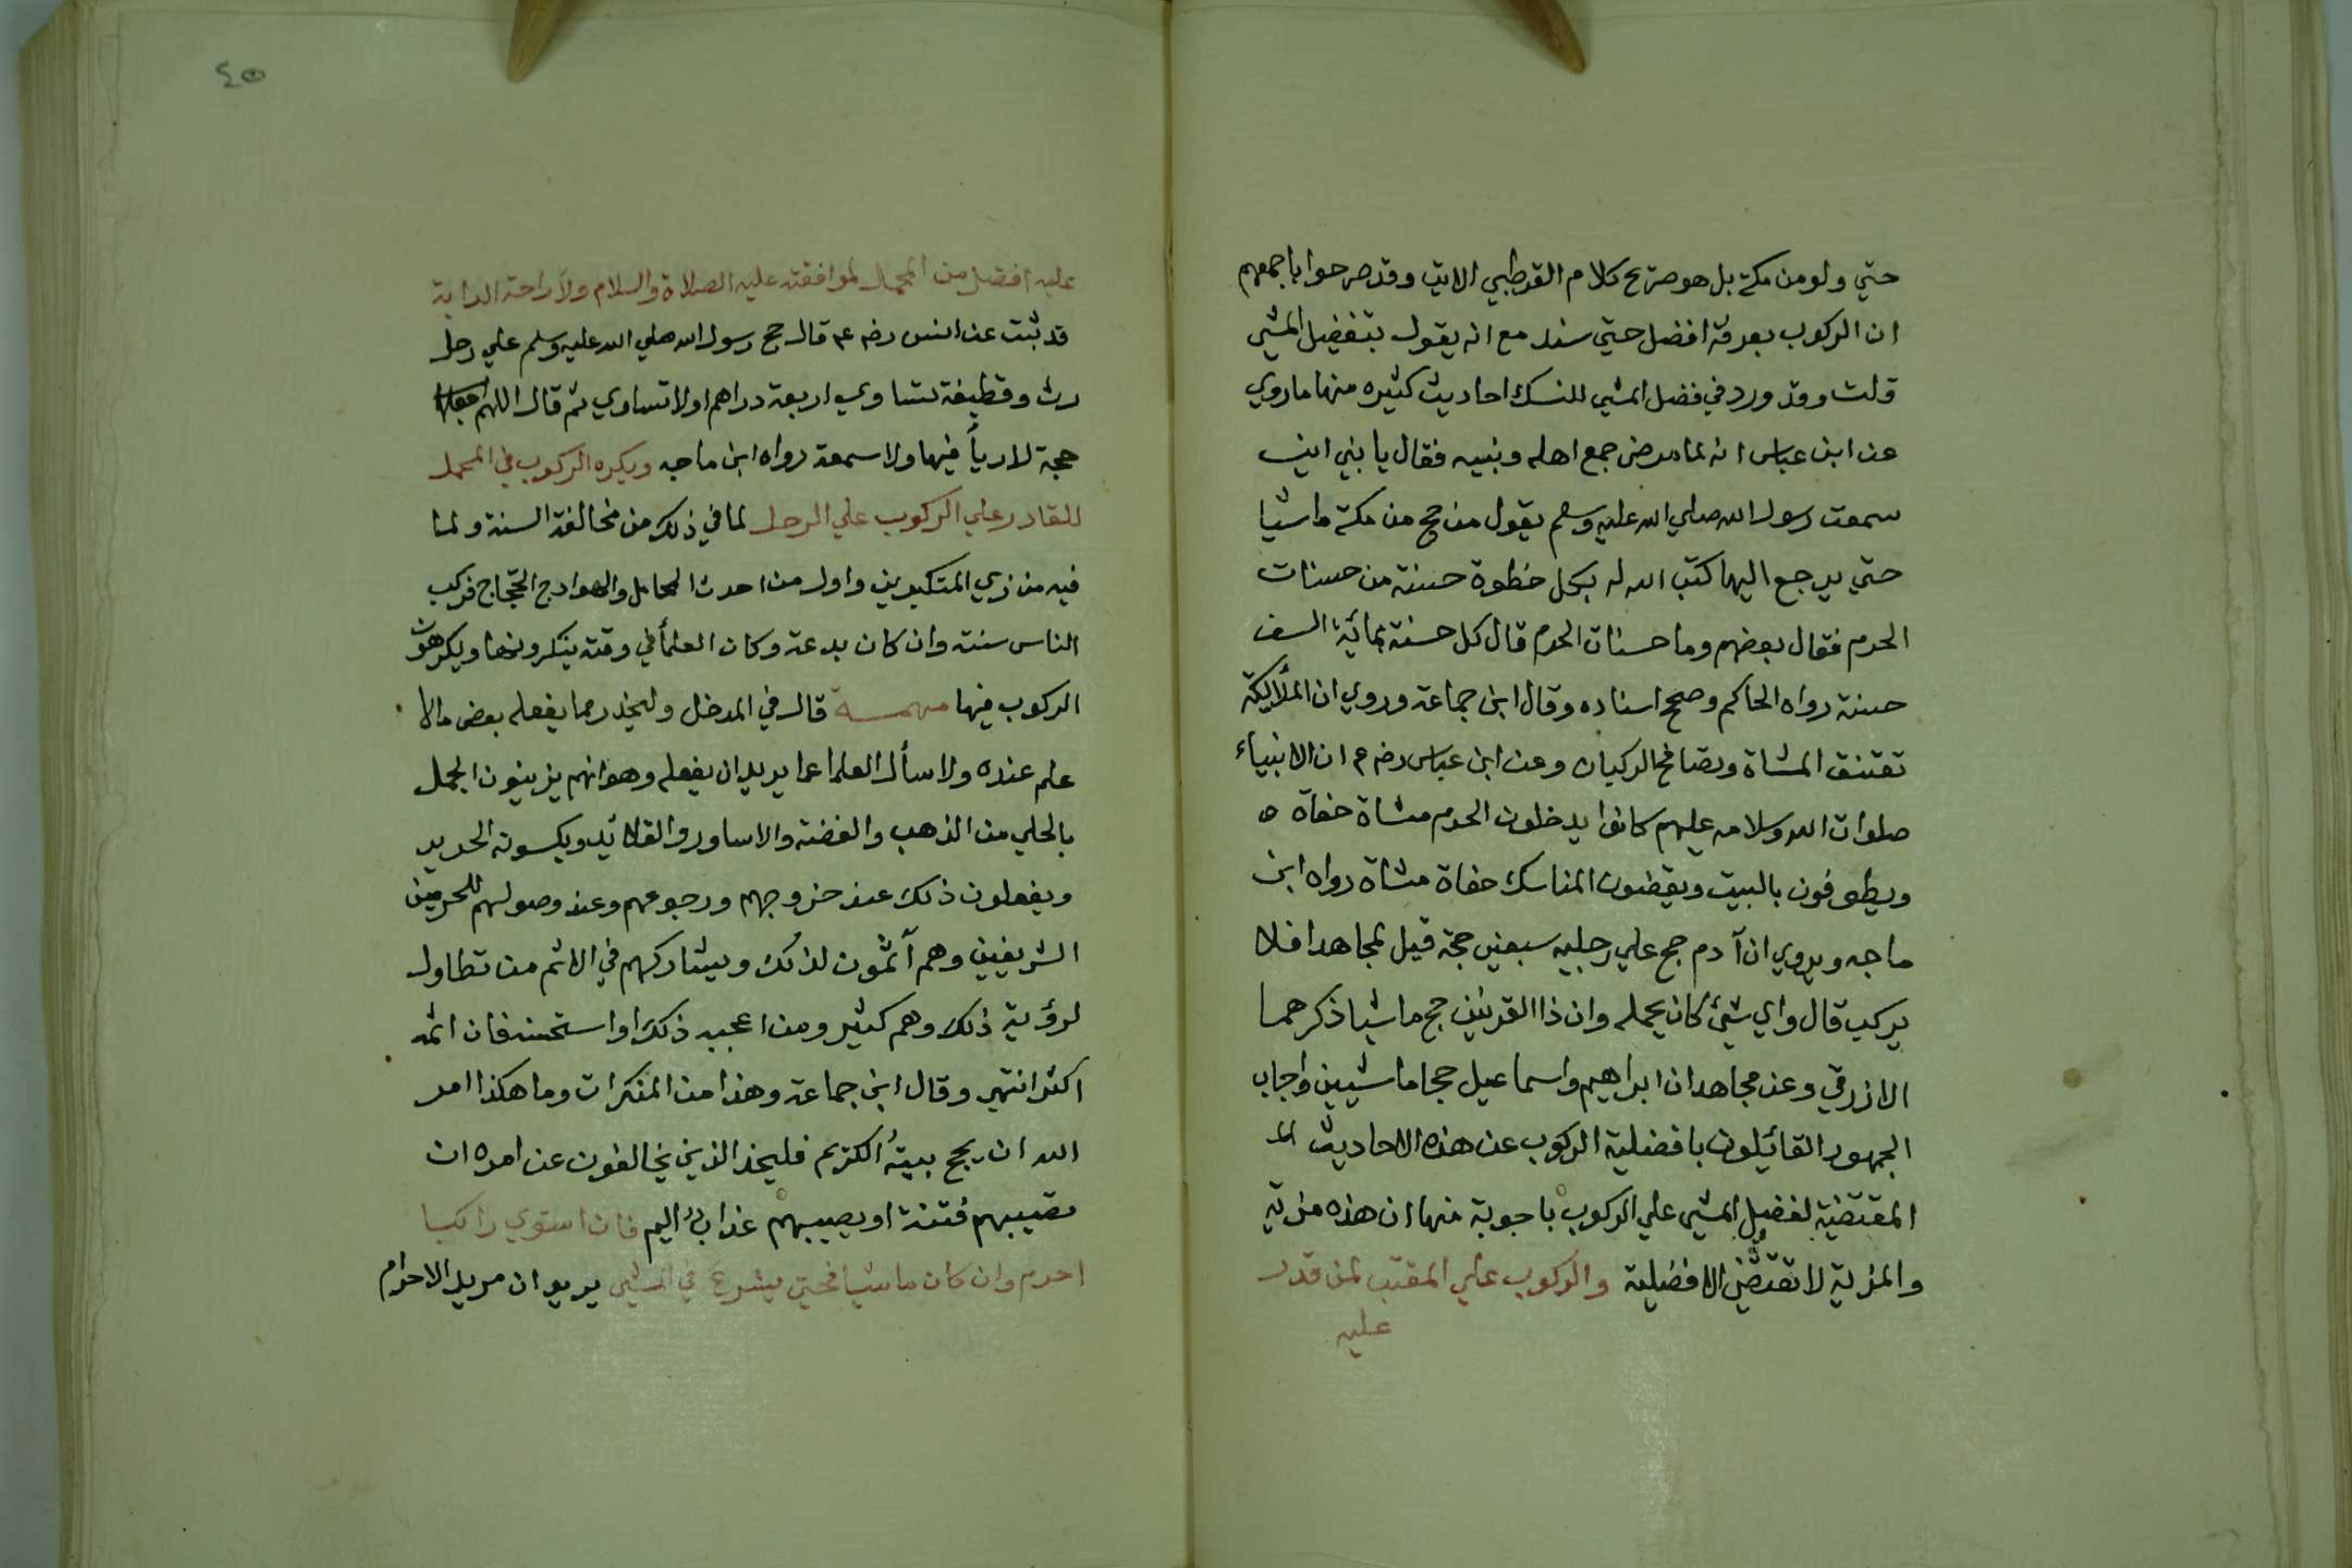 حتي ولو من مكة بل هو صريح كلام القرطبي الاتي وقد صرحوا باجمعهم
ان الركوب بعرفة افضل حتي سند مع انه يقول بتفضيل المشي
قلت وقد ورد في فضل المشي للنسك احاديث كثيره منها ماروي
عن ابن عباس انه لما مرض جمع اهله وبنيه فقال يا بني اني
سمعت رسول الله صلي الله عليه وسلم يقول من حج من مكة ماشيا
حتي يرجع اليها كتب الله له بكل خطوة حسنة من حسنات
الحرم فقال بعضهم وما حسنات الحرم قال كل حسنة بمائة الف
حسنة رواه الحاكم وصحح اسناده وقال ابن جماعة وروي ان الملائكة
تعتنق المشاة وتصافح الركبان وعن ابن عباس رضه ان الانبياء
صلوات الله وسلامه عليهم كانوا يدخلون الحرم مشاة حفاة ه
ويطوفون بالبيت ويقضون المناسك حفاة مشاة رواه ابن
ماجه ويروي ان آدم حج علي رجليه سبعين حجة قيل لمجاهد افلا
يركب قال واي شئ كان يحمله وان ذا القرنين حج ماشيا ذكرهما
الازرقي وعن مجاهد ان ابراهيم واسماعيل حجا ماشيين واجاب
الجمهور القائلون بافضلية الركوب عن هذه الاحاديث
المقتضية لفضل المشي علي الركوب باجوبة منها ان هذه مزية
والمزية لا تقتضي الافضلية والركوب علي المقتب لمن قدر
عليه
٤٥
عليه افضل من المحمل لموافقته عليه الصلاة والسلام ولاراحة الدابة
قد ثبت عن انس رضه قال حج رسول الله صلي الله عليه وسلم علي رحل
رث وقطيفة تساوي اربعة دراهم اولا تساوي ثم قال اللهم اجعلها
حجة لا رياً فيها ولا سمعة رواه ابن ماجه ويكره الركوب في المحمل
للقادر علي الركوب علي الرحل لما في ذلك من مخالفة السنة ولما
فيه من زي المتكبرين واول من احدث المحامل والهوادج الحجّاج فركب
الناس سنته وان كان بدعة وكان العلمأ في وقته ينكرونها ويكرهون
الركوب فيها مهمـــة قال في المدخل وليحذر مما يفعله بعض مالا
علم عنده ولا سأل العلما عما يريد ان يفعله وهو انهم يزينون الجمل
بالحلي من الذهب والفضة والاساور والقلائد ويكسونه الحرير
ويفعلون ذلك عند خروجهم ورجوعهم وعند وصولهم للحرمين
الشريفين وهم آثمون لذلك ويشاركهم في الاثم من تطاول
لرؤية ذلك وهم كثير ومن اعجبه ذلك او استحسنه فان اثمه
اكثر انتهي وقال ابن جماعة وهذا من المنكرات وما هكذا امر
الله ان يحج بيته الكريم فليحذر الذين يخالفون عن امره ان
تصيبهم فتنة او يصيبهم عذاب اليم فان استوي راكبا
احرم وان كان ماشيا فحتي يشرع في المشي يريد ان مريد الاحرام